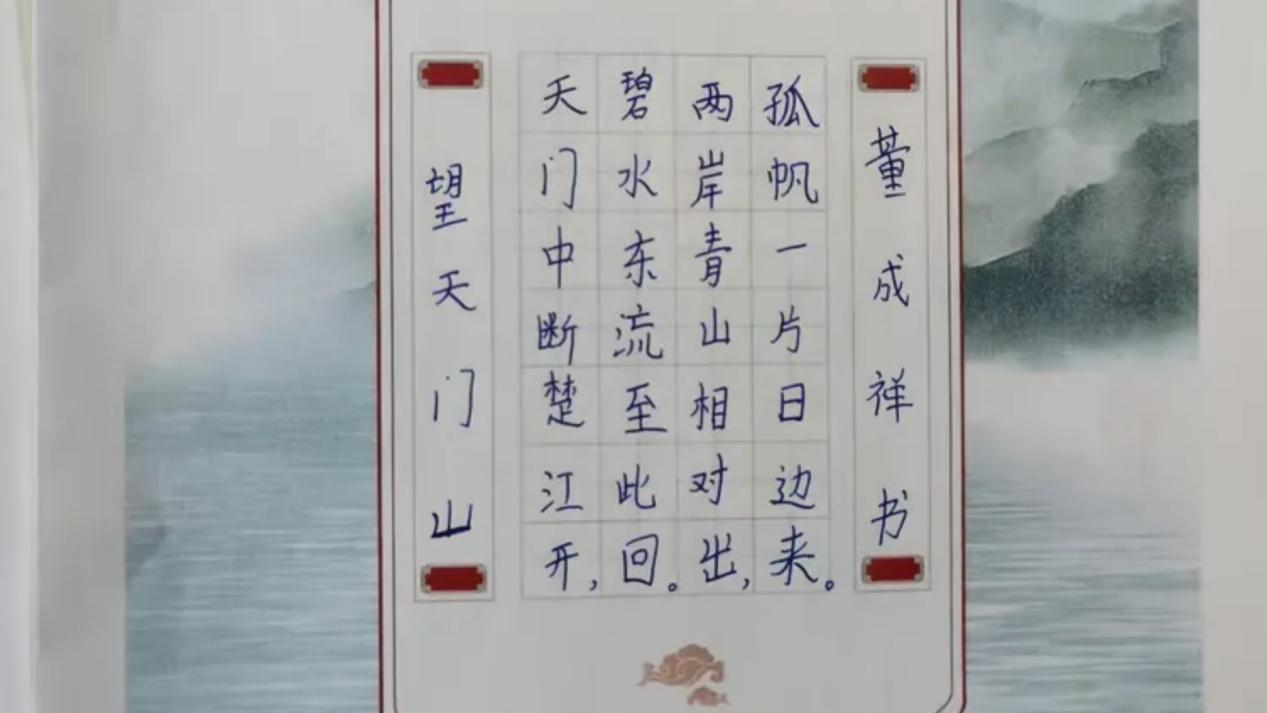 望天门山
天门中断楚江开，
碧水东流至此回。
两岸青山相对出，
孤帆一片日边来。
董成祥书